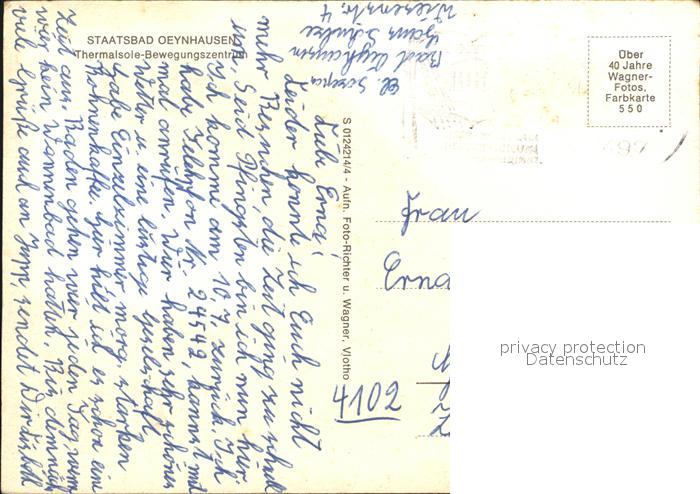 STAATSBAD OEYNHAUSEN
Thermalsole-Bewegungszentrum
Über
40 Jahre
Wagner-
Fotos,
Farbkarte
550
S 0124214/4 - Aufn. Foto-Richter u. Wagner, Vlotho
Bad Oeynhausen
Haus Schulze
Wiesenstr. 4
Liebe Erna!
Leider konnte ich Euch nicht
mehr Besuchen, die Zeit ging zu schnell
um, Seid Pfingsten bin ich nun hier
Ich komme am 10.7. zurück. Ich
habe Telefon Nr. 24542, kannst mal
mal anrufen. Wir haben sehr schönes
Wetter u. eine lustige Gesellschaft
habe Einzelzimmer morg. starken
Bohnenkaffe. Hier hielt ich es schon eine
Zeit aus. Baden gehen wir jeden Tag, wenn
wir kein Wannenbad hatten. Bis demnächst
viele Grüße auch an Jupp, sendet Dir
Frau
Erna
4102
privacy protection
Datenschutz